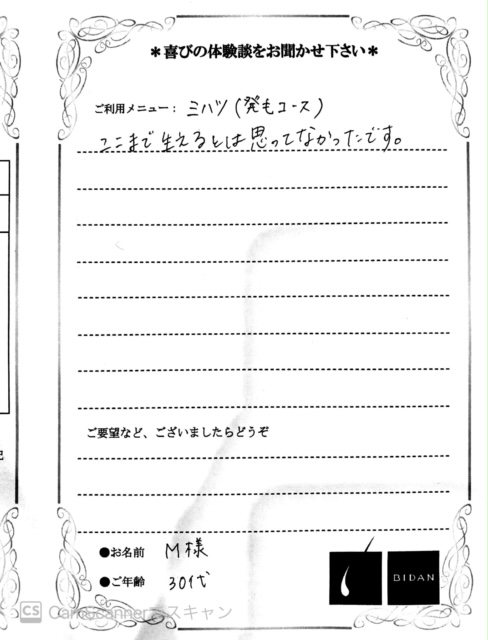 ＊喜びの体験談をお聞かせ下さい＊
ご利用メニュー：ミハツ(発毛コース)
ここまで生えるとは思ってなかったです。
ご要望など、ございましたらどうぞ
●お名前 M様
●ご年齢 30代
BIDAN
CS CamScannerでスキャン